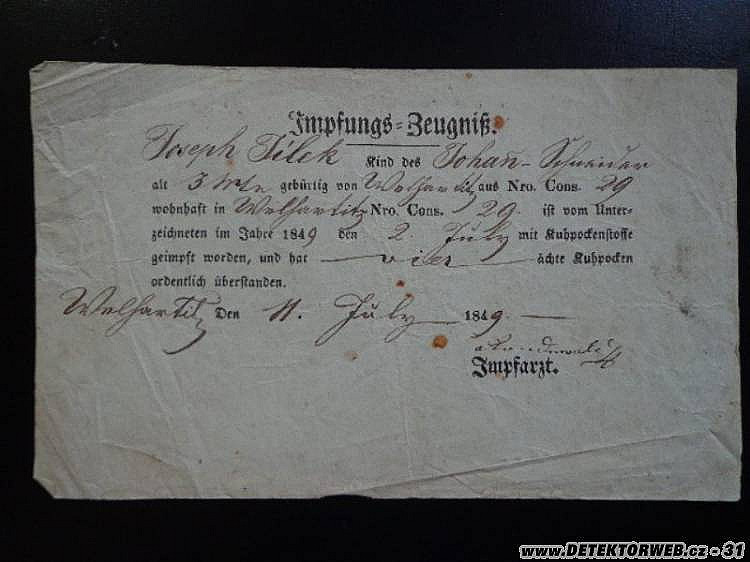 Impfungs-Zeugniß.
Joseph Filek Kind des Johan Schneider
alt 3 Mte gebürtig von Welhartitz aus Nro. Cons. 29
wohnhaft in Welhartitz Nro. Cons. 29. ist vom Unter-
zeichneten im Jahre 1849 den 2. July mit Kuhpockenstoffe
geimpft worden, und hat vier ächte Kuhpocken
ordentlich überstanden.
Welhartitz Den 11. July 1849.
Impfarzt.
www.DETEKTORWEB.cz - 31